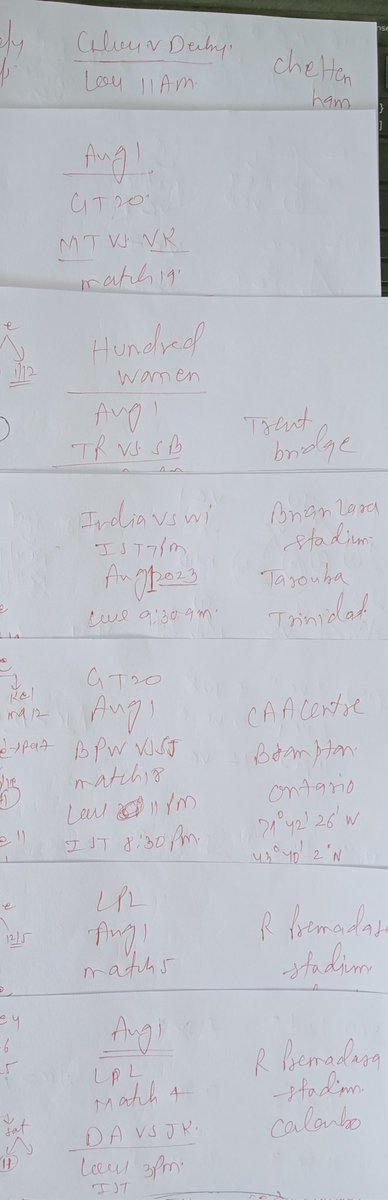 Derby.
11 AM
Chelten
ham
Aug 1
GT20
MT VS VK
match 19.
Hundred
women
Aug 1
TR VS SB
Trent
bridge
India vs wi
IST 7 Pm
Aug 1 2023
9:30 am.
Brian Lara
stadium
Tarouba
Trinidad.
GT20
Aug 1
BPW VS SJ
match 18
11 pm
IST 8:30 Pm.
CAA Centre
Brampton.
ontario
79° 42' 26' W
43° 40' 2" N
LPL
Aug 1
match 5
R Premadasa
stadium
Aug 1
LPL
Match 4
DA VS JK.
3 Pm.
IST
R Premadasa
stadium
Colombo